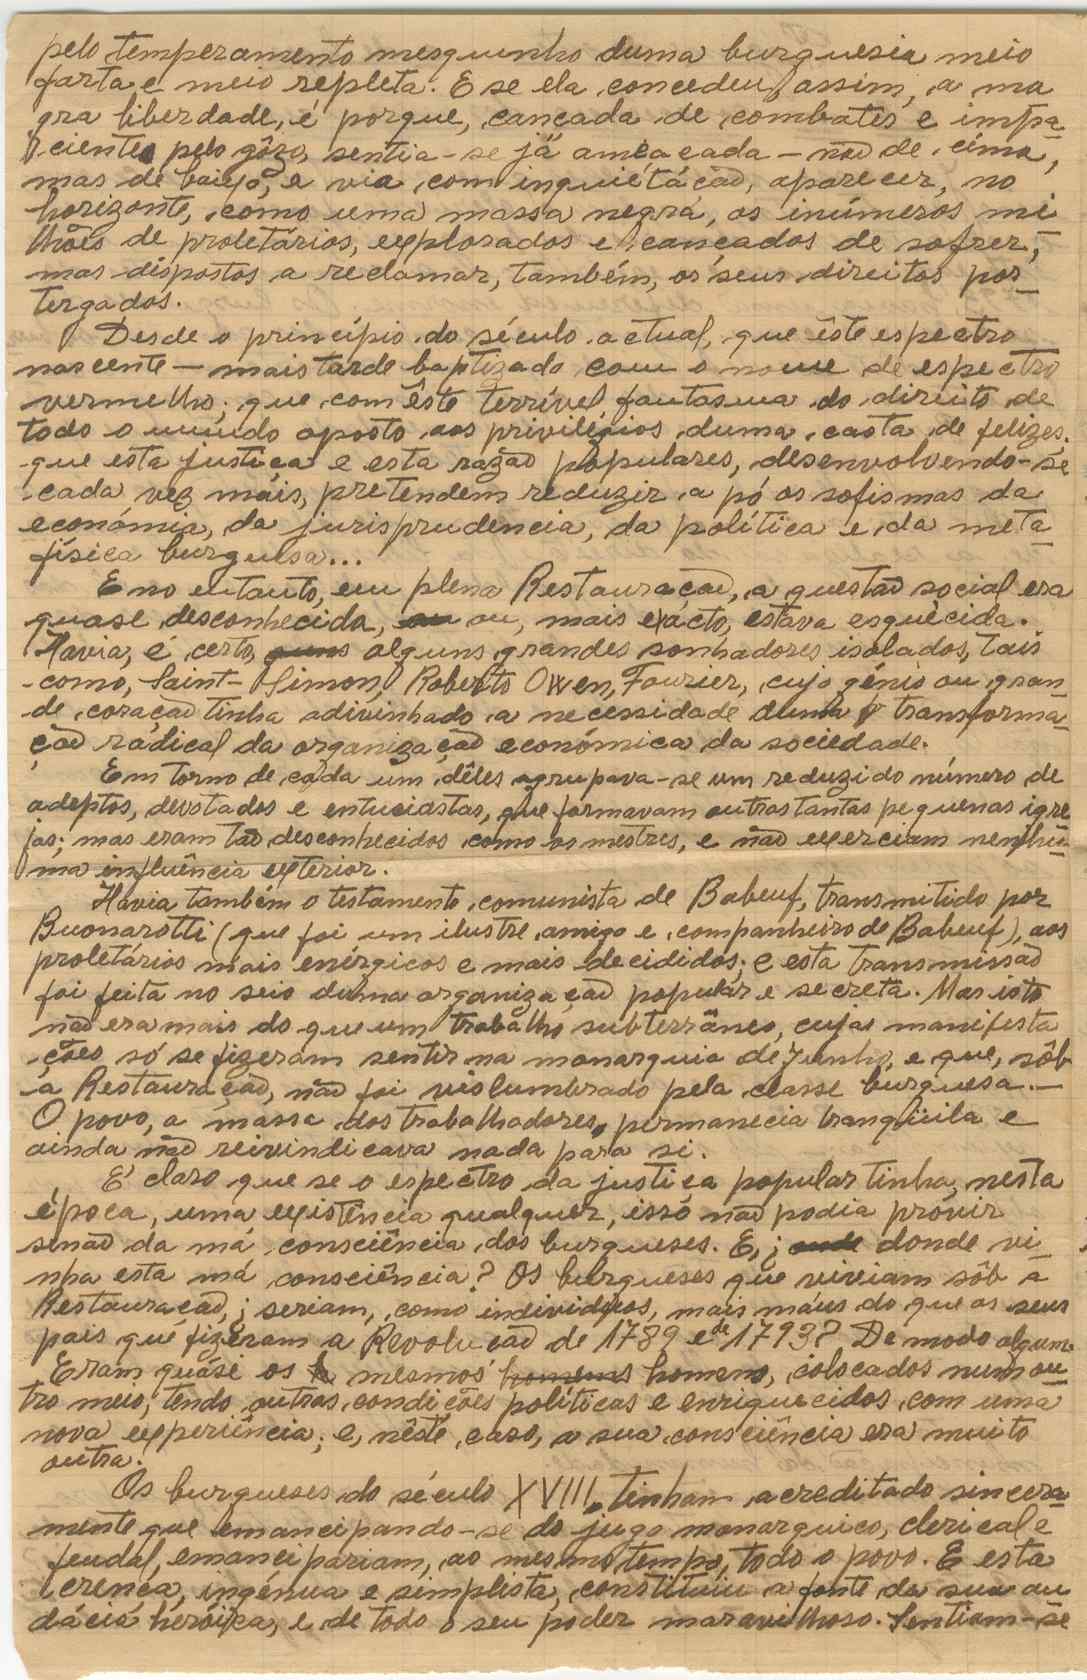 pelo temperamento mesquinho duma burguesia meio
farta e meio repleta. E se ela concedeu, assim, a ma
gra liberdade, é porque, cançada de combates e impa-
ciente pelo gôzo, sentia-se já ameaçada — não de cima,
mas de baixo, e via, com inquietáção, aparecer, no
horizonte, como uma massa negra, os inúmeros mi
lhões de proletários, explorados e cançados de sofrer,
mas dispostos a reclamar, também, os seus direitos pos-
tergados.
Desde o princípio do século actual, que êste espectro
nascente — mais tarde baptizado com o nome de espectro
vermelho; que com êste terrível fantasma do direito de
todo o mundo oposto aos privilégios duma casta de felizes.
que esta justiça e esta razão populares, desenvolvendo-se
cada vez mais, pretendem reduzir a pó os sofismas da
económia, da jurisprudencia, da política e da meta-
física burguesa...
E no entanto, em plena Restauração, a questão social era
quase desconhecida, ou ou, mais exácto, estava esquècida.
Havia, é certo, alguns grandes sonhadores isolados, tais
como, Saint-Simon, Roberto Owen, Fourier, cujo génio ou gran
de coração tinha adivinhado a necessidade duma transforma-
ção rádical da organização económica da sociedade.
Em torno de cada um dêles agrupava-se um reduzido número de
adeptos, devotados e entuciastas, que formavam outras tantas pequenas igre
jas; mas eram tão desconhecidos como os mestres, e não exerciam nenhu-
ma influência exterior.
Havia também o testamento comunista de Babeuf, transmitido por
Buonarotti (que foi um ilustre amigo e companheiro de Babeuf), aos
proletários mais enérgicos e mais decididos; e esta transmissão
foi feita no seio duma organização popular e secreta. Mas isto
não era mais do que um trabalho subterrâneo, cujas manifesta
ções só se fizeram sentir na monarquia de Junho, e que, sôb
a Restauração, não foi vislumbrado pela classe burguesa. —
O povo, a massa dos trabalhadores, permanecia tranqüila e
ainda não reivindicava nada para si.
É claro que se o espectro da justiça popular tinha, nesta
época, uma existência qualquer, isso não podia provir
senão da má consciência dos burgueses. E, ¿ onde donde vi-
nha esta má consciência? Os burgueses que viviam sôb a
Restauração, ¿ seriam, como individuos, mais máus do que os seus
pais que fizeram a Revolução de 1789 e de 1793? De modo algum.
Eram quási os mesmos homens homens, colocados num ou
tro meio, tendo outras condições políticas e enriquecidos com uma
nova experiência; e, nêste caso, a sua consciência era muito
outra.
Os burgueses do século XVIII tinham acreditado sincera-
mente que emancipando-se do jugo monarquico, clerical e
feudal, emancipariam, ao mesmo tempo, todo o povo. E esta
crença, ingénua e simplista, constituiu a fonte da sua au
dácia heróica, e de todo o seu poder maravilhoso. Sentiam-se